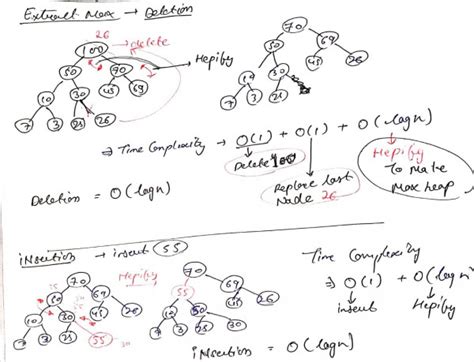 Extract Max → Deletion
26
100 → delete
50 70 → Hepify
10 30 45 69
7 3 25 26
70
50 69
10 30 45 26
7 3 25
⇒ Time Complexity → O(1) + O(1) + O(logn)
Delete 100
Replace last
Node 26
Hepify
To Make
Max heap
Deletion = O(logn)
insertion → insert 55
Hepify
70
50 69
10 30 45 26
7 3 25 55
70
55 69
10 50 45 26
7 3 25 30
Time Complexity
⇒ O(1) + O(logn
insert Hepify
insertion = O(logn)